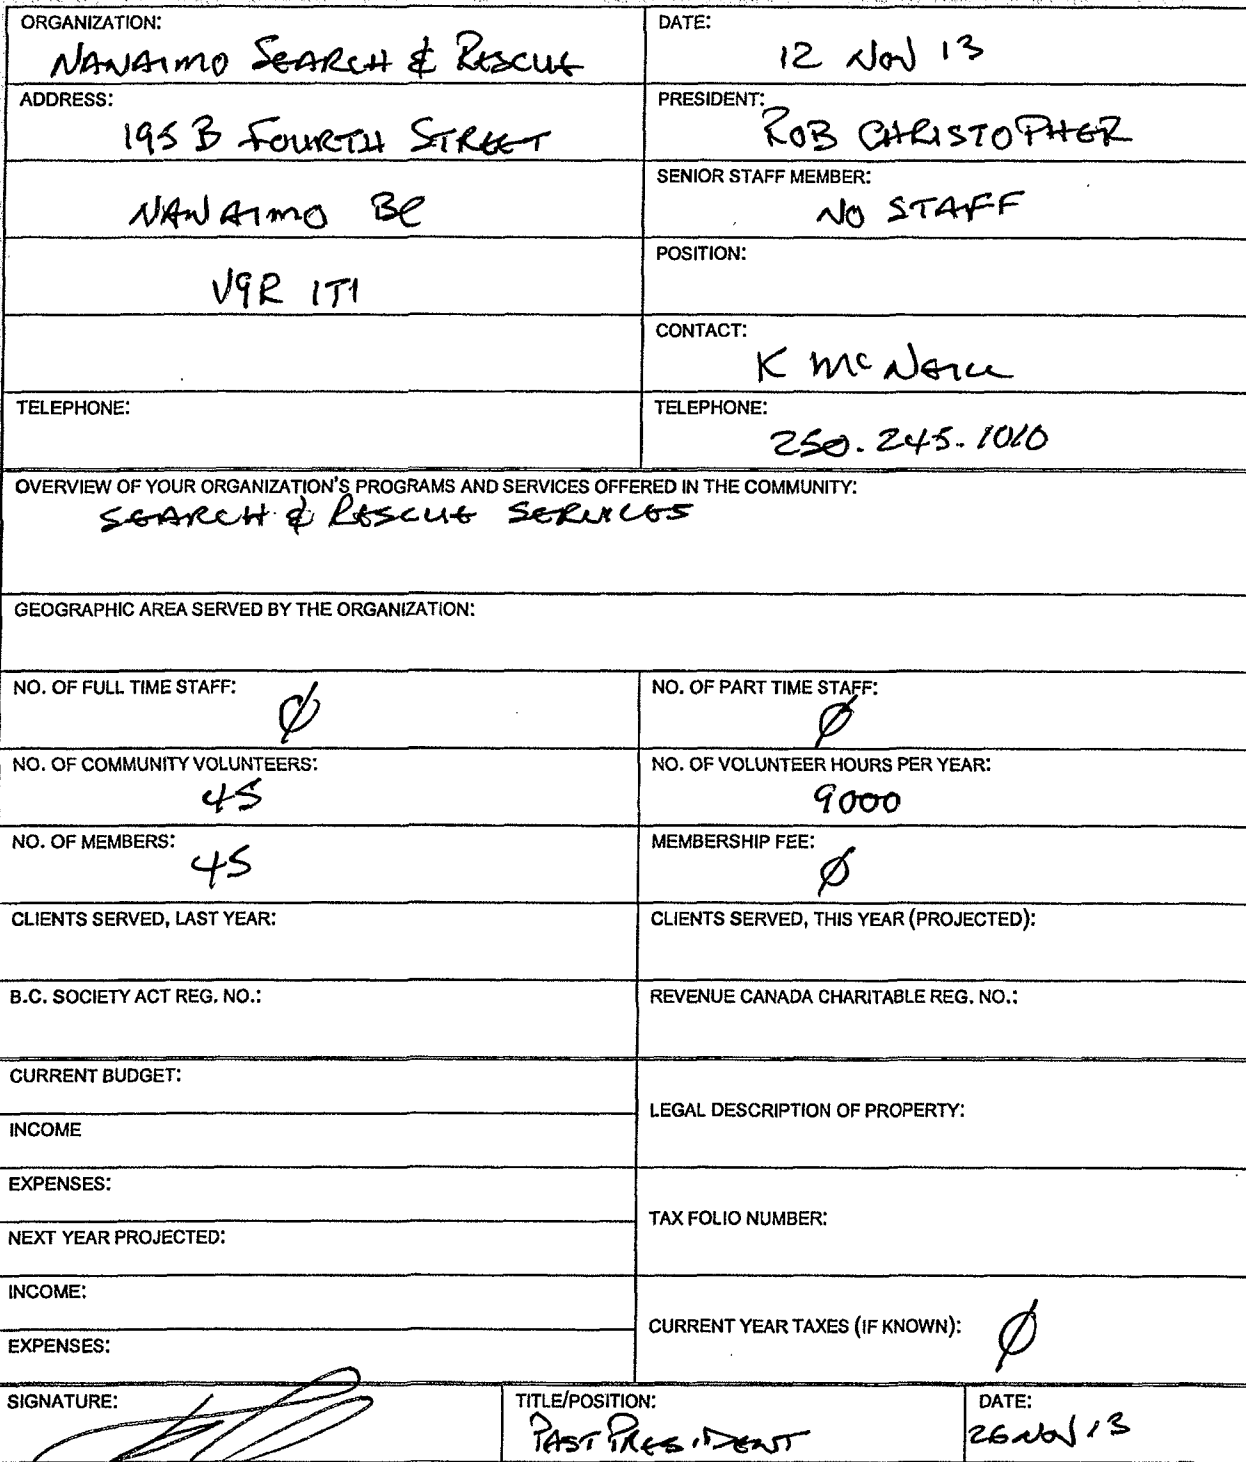 ORGANIZATION:
NANAIMO SEARCH & RESCUE
DATE:
12 NOV 13
ADDRESS:
195 B FOURTH STREET
PRESIDENT:
ROB CHRISTOPHER
NANAIMO BC
SENIOR STAFF MEMBER:
NO STAFF
V9R 1T1
POSITION:
CONTACT:
K McNEILL
TELEPHONE:
TELEPHONE:
250.245.1010
OVERVIEW OF YOUR ORGANIZATION'S PROGRAMS AND SERVICES OFFERED IN THE COMMUNITY:
SEARCH & RESCUE SERVICES
GEOGRAPHIC AREA SERVED BY THE ORGANIZATION:
NO. OF FULL TIME STAFF:
Ø
NO. OF PART TIME STAFF:
Ø
NO. OF COMMUNITY VOLUNTEERS:
45
NO. OF VOLUNTEER HOURS PER YEAR:
9000
NO. OF MEMBERS:
45
MEMBERSHIP FEE:
Ø
CLIENTS SERVED, LAST YEAR:
CLIENTS SERVED, THIS YEAR (PROJECTED):
B.C. SOCIETY ACT REG. NO.:
REVENUE CANADA CHARITABLE REG. NO.:
CURRENT BUDGET:
LEGAL DESCRIPTION OF PROPERTY:
INCOME
EXPENSES:
TAX FOLIO NUMBER:
NEXT YEAR PROJECTED:
INCOME:
CURRENT YEAR TAXES (IF KNOWN): Ø
EXPENSES:
SIGNATURE:
TITLE/POSITION:
PAST PRESIDENT
DATE:
26 NOV 13